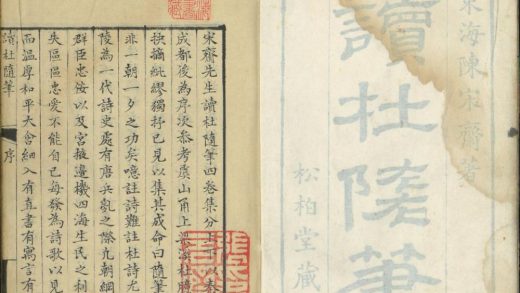 東海陳宋齋著
讀杜隨筆
松柏堂藏
宋齋先生讀杜隨筆四卷集分上下以
成都後為序次參考虞山甬上梁溪杜
抉摘紕繆獨抒己見以集其成命曰隨筆
非一朝一夕之功矣噫註詩難註杜詩尤
陵為一代詩史處有唐兵亂之際凡朝綱
群臣忠佞以及宮掖邊機四海生民之利
失區區忠愛不能自已每發為詩歌以見
而溫厚和平大含細入有直書有寓言有
讀杜隨筆 序